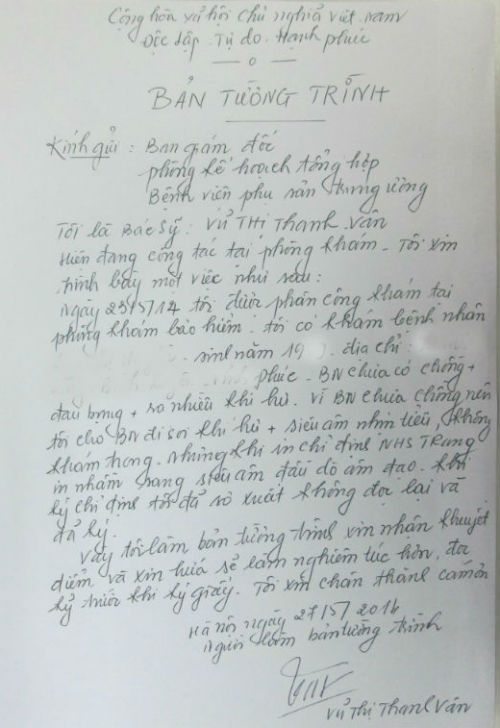 Cộng hòa xã hội chủ nghĩa việt nam
Độc lập. Tự do. Hạnh phúc
BẢN TƯỜNG TRÌNH
Kính gửi : Ban giám đốc
phòng kế hoạch tổng hợp
Bệnh viện phụ sản trung ương
Tôi là Bác sỹ : Vũ Thị Thanh Vân
Hiện đang công tác tại phòng khám. Tôi xin
trình bày một việc như sau :
Ngày 23/5/14 tôi được phân công khám tại
phòng khám bảo hiểm. tôi có khám bệnh nhân
sinh năm 19 địa chỉ :
phúc. BN chưa có chồng +
đau bụng + ra nhiều khí hư. Vì BN chưa chồng nên
tôi cho BN đi soi khí hư + siêu âm nhịn tiểu, không
khám trong. Nhưng khi in chỉ định NHS Trang
in nhầm sang siêu âm đầu dò âm đạo. khi
ký chỉ định tôi đã sơ xuất không đọc lại và
đã ký.
Vậy tôi làm bản tường trình xin nhận khuyết
điểm và xin hứa sẽ làm nghiêm túc hơn, đọc
kỹ trước khi ký giấy. Tôi xin chân thành cảm ơn
Hà Nội ngày 27/5/2014
Người làm bản tường trình
Vũ Thị Thanh Vân